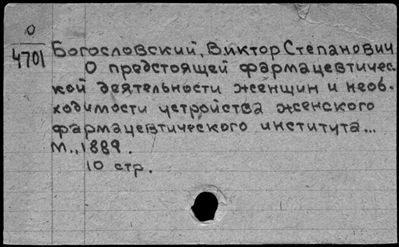 О
4701
Богословский, Виктор Степанович
О предстоящей фармацевтичес-
кой деятельности женщин и необ-
ходимости устройства женского
фармацевтического института...
М., 1889.
10 стр.